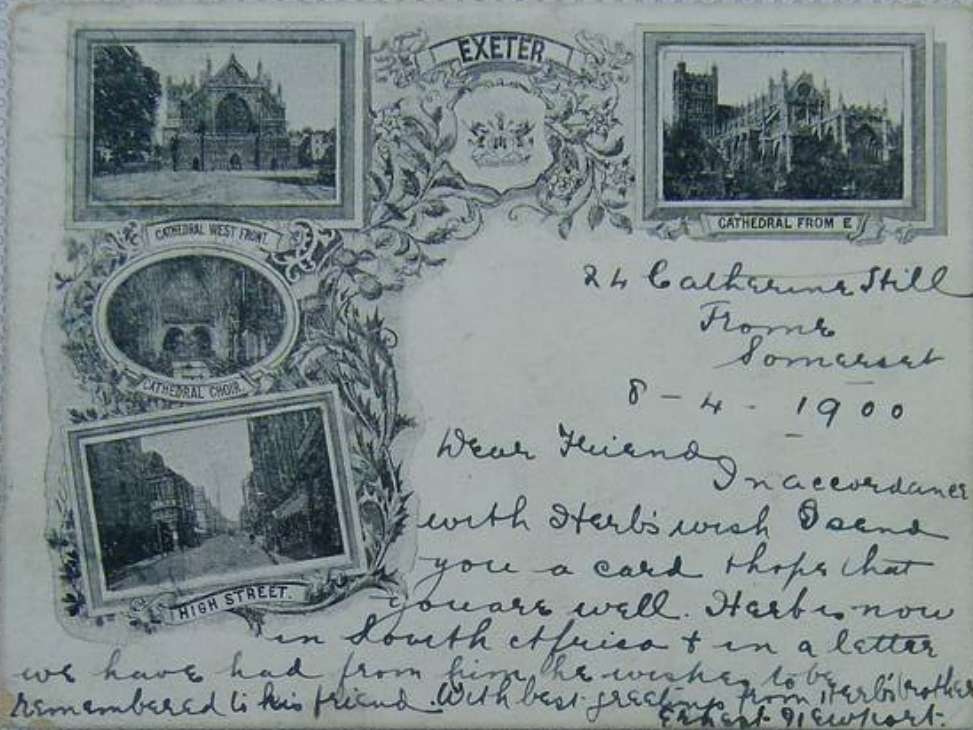 EXETER
CATHEDRAL WEST FRONT.
CATHEDRAL FROM E
CATHEDRAL CHOIR.
HIGH STREET.
24 Catherine Hill
Frome
Somerset
8 - 4 - 1900
Dear Friend,
In accordance
with Herb's wish I send
you a card & hope that
you are well. Herb is now
in South Africa & in a letter
we have had from him he wishes to be
remembered to his friend. With best greetings from Herb's brother
Ernest Newport.